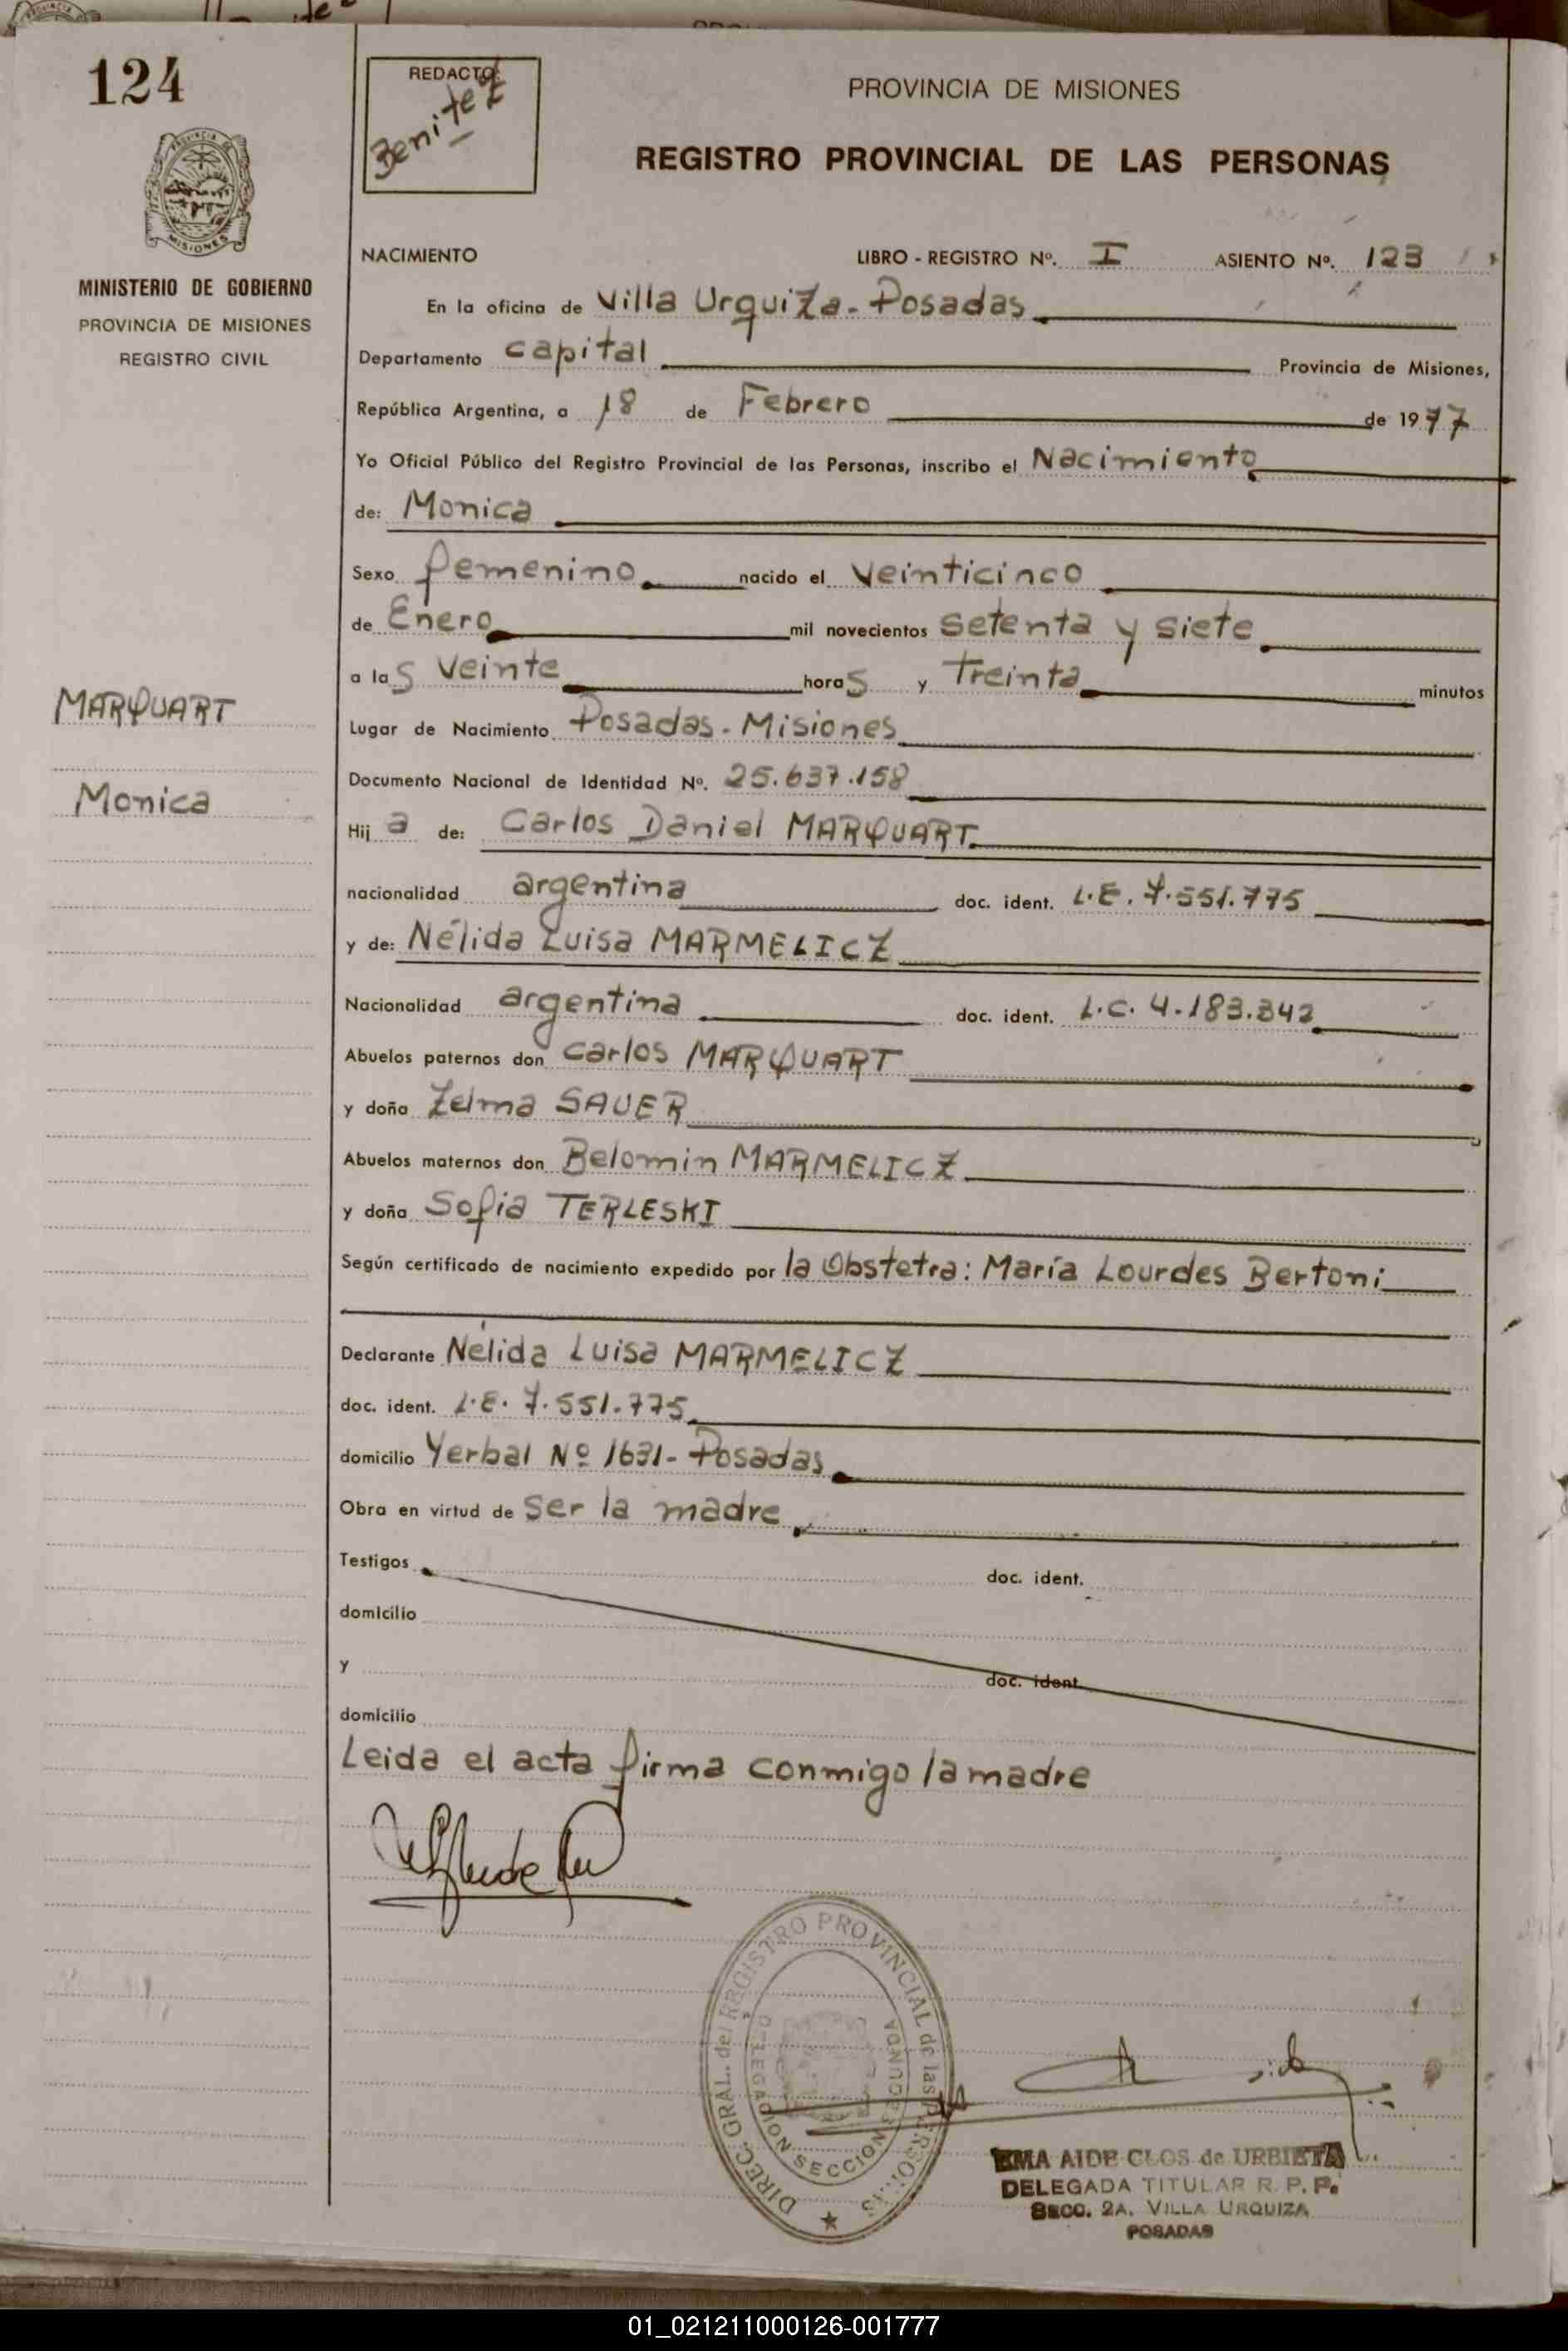 124
REDACTO:
Benitez
PROVINCIA DE MISIONES
REGISTRO PROVINCIAL DE LAS PERSONAS
MISIONES
MINISTERIO DE GOBIERNO
PROVINCIA DE MISIONES
REGISTRO CIVIL
NACIMIENTO LIBRO - REGISTRO Nº. I ASIENTO Nº. 123
En la oficina de Villa Urquiza - Posadas
Departamento Capital Provincia de Misiones,
República Argentina, a 18 de Febrero de 1977
Yo Oficial Público del Registro Provincial de las Personas, inscribo el Nacimiento
de: Monica
Sexo femenino nacido el veinticinco
de Enero mil novecientos setenta y siete
a las veinte horas y treinta minutos
MARQUART
Monica
Lugar de Nacimiento Posadas - Misiones
Documento Nacional de Identidad Nº. 25.637.158
Hija de: Carlos Daniel MARQUART
nacionalidad argentina doc. ident. L.E. 7.551.775
y de: Nélida Luisa MARMELICZ
Nacionalidad argentina doc. ident. L.C. 4.183.342
Abuelos paternos don Carlos MARQUART
y doña Zelma SAUER
Abuelos maternos don Belomin MARMELICZ
y doña Sofia TERLESKI
Según certificado de nacimiento expedido por la Obstetra: María Lourdes Bertoni
Declarante Nélida Luisa MARMELICZ
doc. ident. L.E. 7.551.775
domicilio Yerbal Nº 1631 - Posadas
Obra en virtud de ser la madre
Testigos doc. ident.
domicilio
y doc. ident.
domicilio
Leida el acta firma conmigo la madre
DIREC. GRAL. del REGISTRO PROVINCIAL de las PERSONAS
DELEGACION SECCION SEGUNDA
EMA AIDE CLOS de URBIETA
DELEGADA TITULAR R. P. P.
SECC. 2A. VILLA URQUIZA
POSADAS
01_021211000126-001777